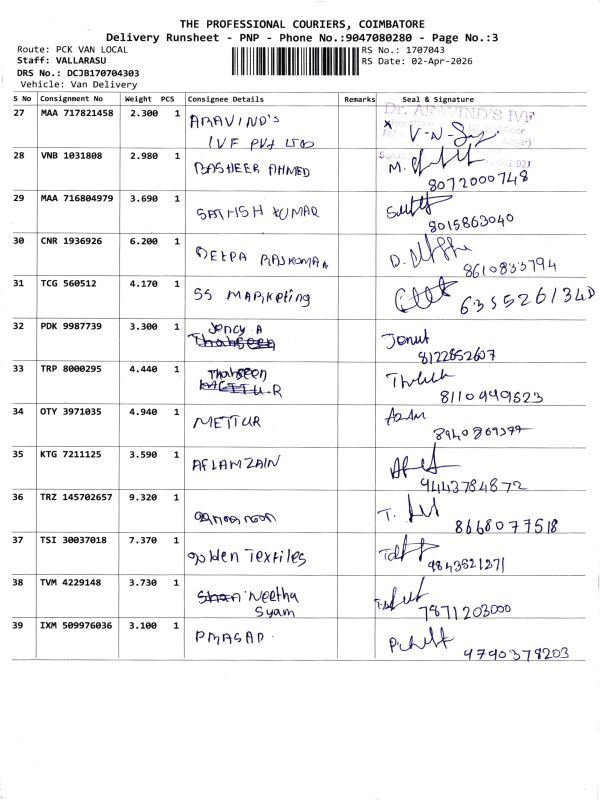 THE PROFESSIONAL COURIERS, COIMBATORE
Delivery Runsheet - PNP - Phone No.:9047080280 - Page No.:3
Route: PCK VAN LOCAL
RS No.: 1707043
Staff: VALLARASU
RS Date: 02-Apr-2026
DRS No.: DCJB170704303
Vehicle: Van Delivery
S No Consignment No Weight PCS Consignee Details Remarks Seal & Signature
27 MAA 717821458 2.300 1 ARAVIND's
IVF PVt LTD
Dr. ARAVIND'S IVF
V-N-
28 VNB 1031808 2.980 1 BASHEER AHMED M.
8072000748
29 MAA 716804979 3.690 1 SATHISH KUMAR
8015863040
30 CNR 1936926 6.200 1 DEEPA RAJKUMAR D.
8610833794
31 TCG 560512 4.170 1 SS MARKEting
32 PDK 9987739 3.300 1 Jency A
Thahseen
8122852607
33 TRP 8000295 4.440 1 Thahseen
METTUR
8110949523
34 OTY 3971035 4.940 1 METTUR
35 KTG 7211125 3.590 1 AFLAMZAIN
9443784872
36 TRZ 145702657 9.320 1 T.
8668077518
37 TSI 30037018 7.370 1 golden Textiles
9843521271
38 TVM 4229148 3.730 1 Neetha
Syam
7871203000
39 IXM 509976036 3.100 1 PRASAD
9790378203